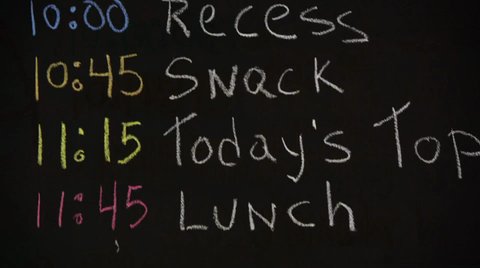 10:00 Recess
10:45 Snack
11:15 Today's Top
11:45 Lunch